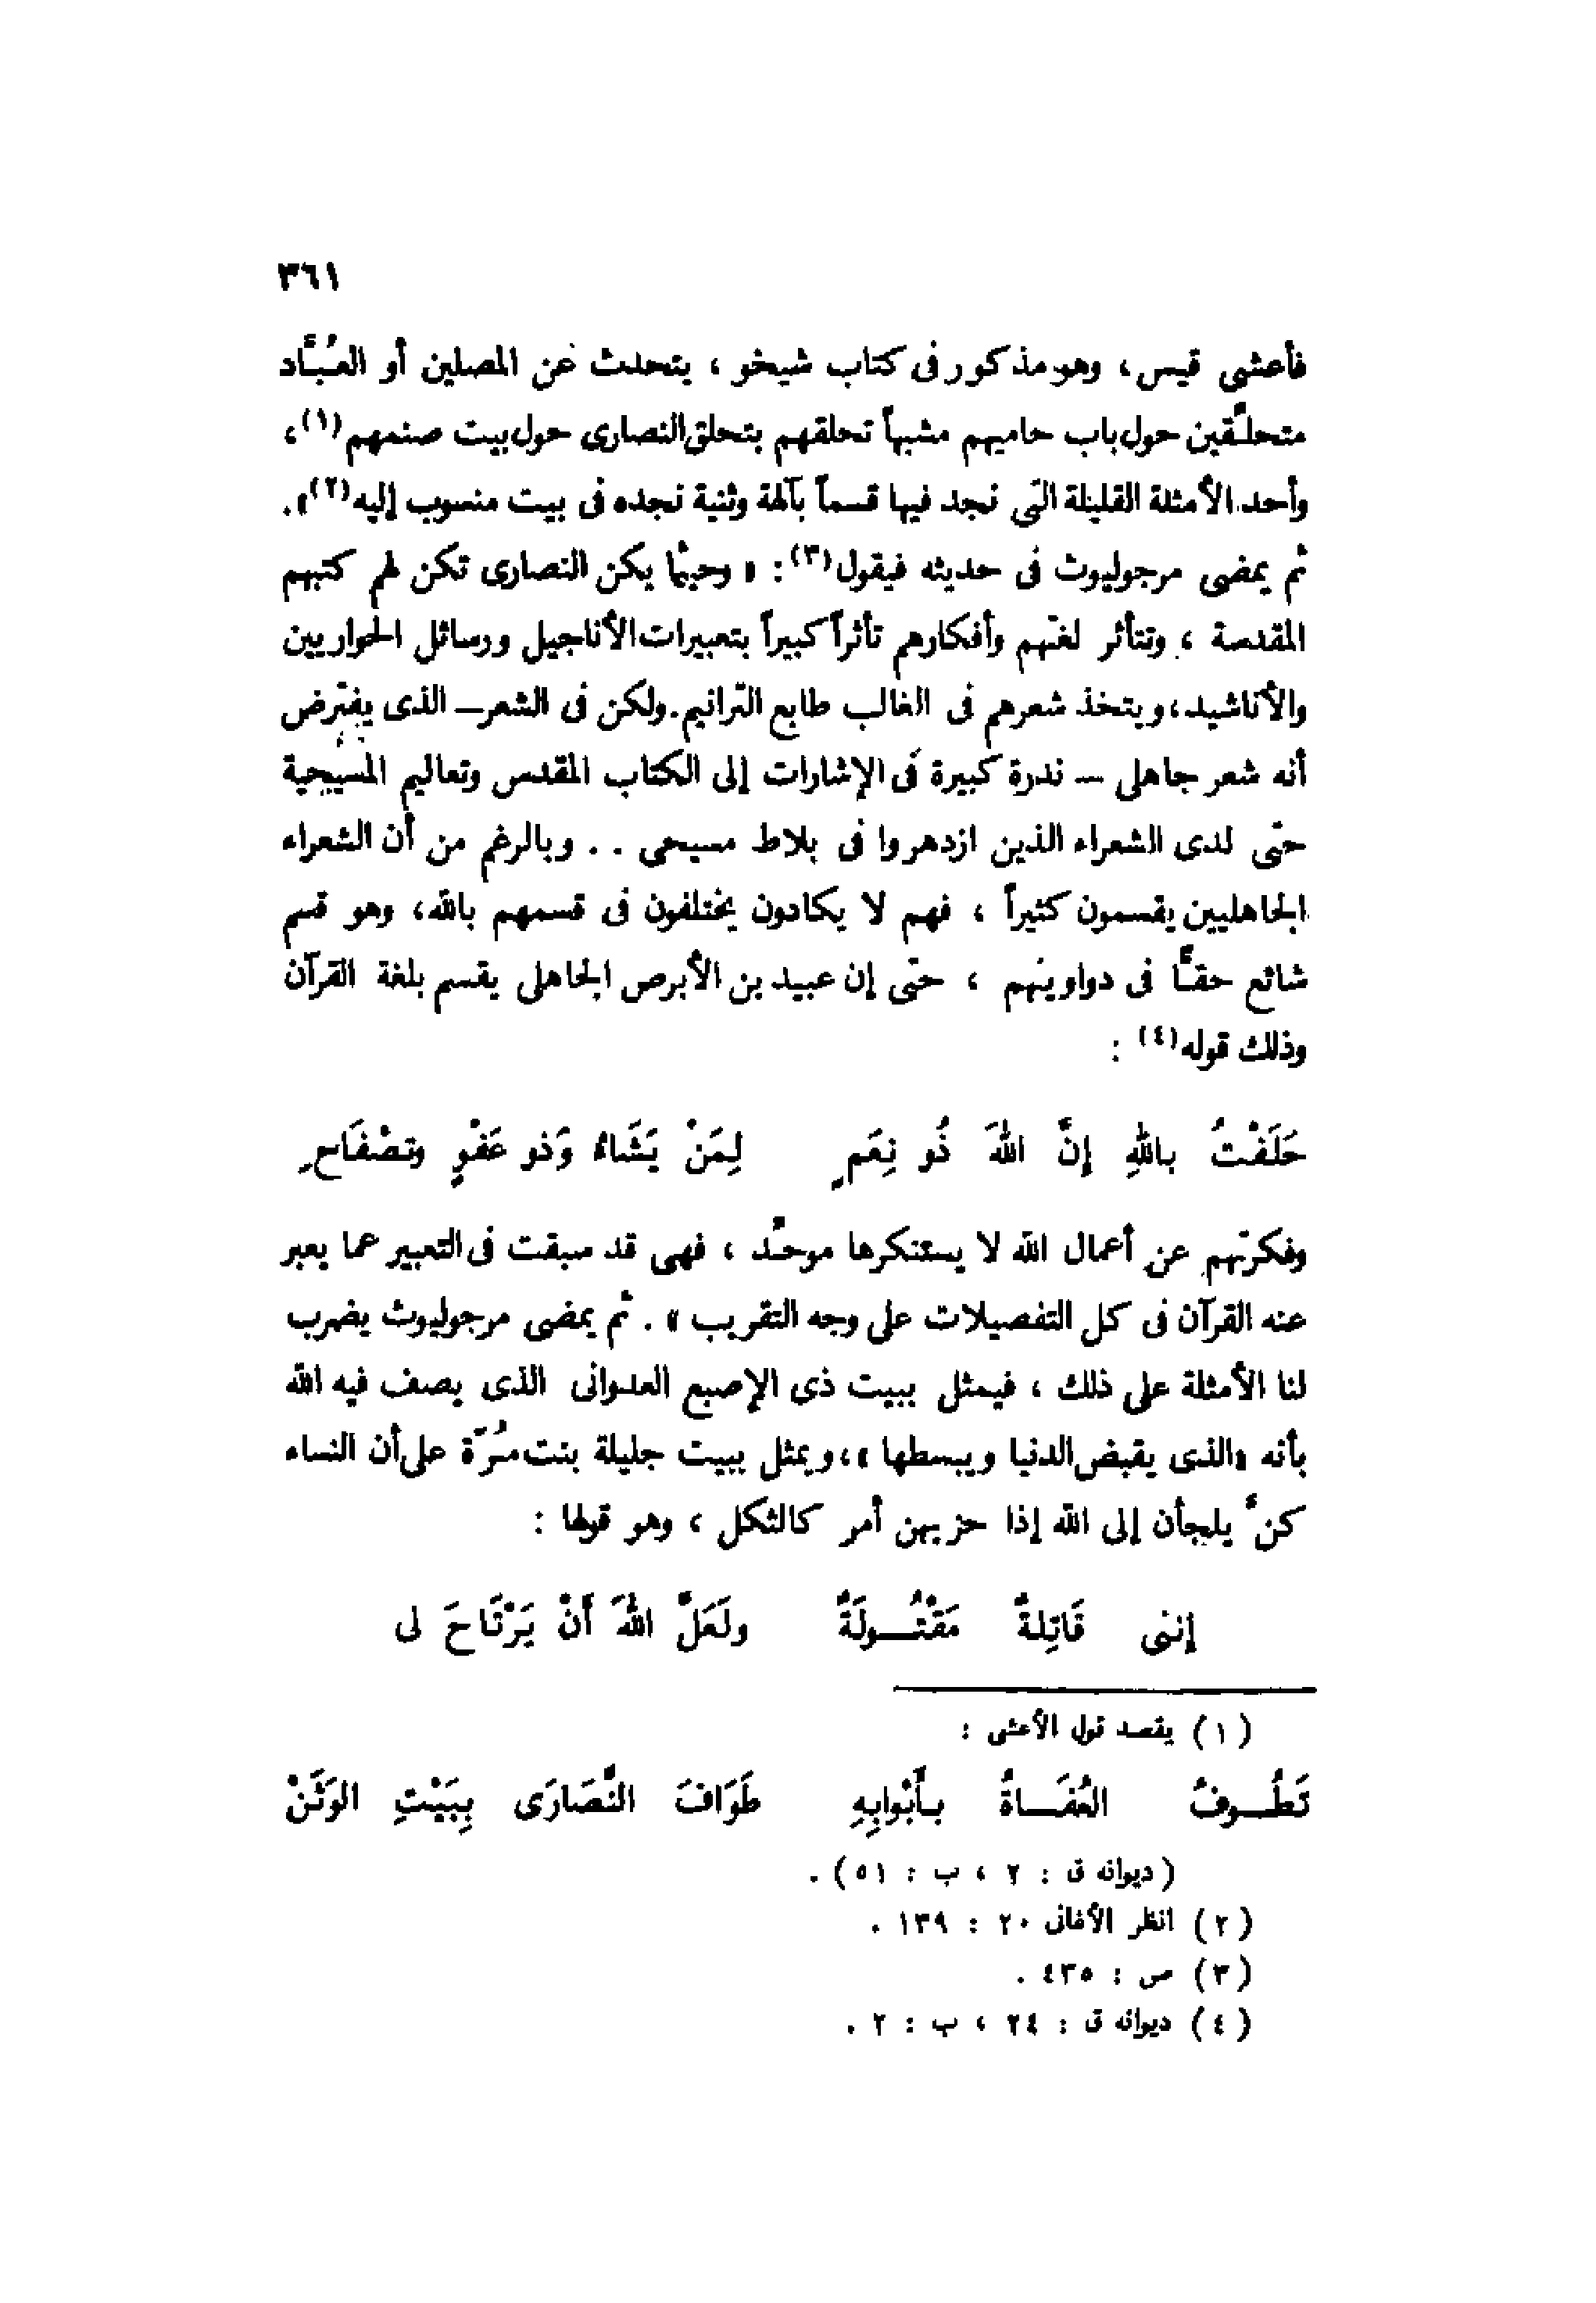 ٣٦١
فأعشى قيس، وهو مذكور فى كتاب شيخو ، يتحدث عن المصلين أو العُبَّاد
متحلِّقين حول باب حاميهم مشبهاً تحلقهم بتحلق النصارى حول بيت صنمهم(١)،
وأحد الأمثلة القليلة التى نجد فيها قسماً بآلهة وثنية نجده فى بيت منسوب إليه(٢)».
ثم يمضى مرجوليوث فى حديثه فيقول(٣): « وحيثما يكن النصارى تكن لهم كتبهم
المقدسة ، وتتأثر لغتهم وأفكارهم تأثراً كبيراً بتعبيرات الأناجيل ورسائل الحواريين
والأناشيد، ويتخذ شعرهم فى الغالب طابع الترانيم. ولكن فى الشعر – الذى يفترض
أنه شعر جاهلى – ندرة كبيرة فى الإشارات إلى الكتاب المقدس وتعاليم المسيحية
حتى لدى الشعراء الذين ازدهروا فى بلاط مسيحى . . وبالرغم من أن الشعراء
الجاهليين يقسمون كثيراً ، فهم لا يكادون يختلفون فى قسمهم بالله، وهو قسم
شائع حقًّا فى دواوينهم ، حتى إن عبيد بن الأبرص الجاهلى يقسم بلغة القرآن
وذلك قوله(٤) :
حَلَفْتُ باللهِ إنَّ اللهَ ذُو نِعَمٍ لِمَنْ يَشَاءُ وَذو عَفْوٍ وتصْفَاحِ
وفكرتهم عن أعمال الله لا يستنكرها موحِّد ، فهى قد سبقت فى التعبير عما يعبر
عنه القرآن فى كل التفصيلات على وجه التقريب » . ثم يمضى مرجوليوث يضرب
لنا الأمثلة على ذلك ، فيمثل ببيت ذى الإصبع العدوانى الذى يصف فيه الله
بأنه «الذى يقبض الدنيا ويبسطها »، ويمثل ببيت جليلة بنت مُرّة على أن النساء
كنَّ يلجأن إلى الله إذا حزبهن أمر كالثكل ، وهو قولها :
إننى قَاتِلةٌ مَقْتُـــولَةٌ ولَعَلَّ اللهَ أَنْ يَرْتَاحَ لى
(١) يقصد قول الأعشى :
تَطُـــوفُ العُفَـــاةُ بـأَبْوابِهِ طَوَافَ النَّصَارَى بِبَيْتِ الوَثَنْ
(ديوانه ق : ٢ ، ب : ٥١) .
(٢) انظر الأغانى ٢٠ : ١٣٩ .
(٣) ص : ٤٣٥ .
(٤) ديوانه ق : ٢٤ ، ب : ٢ .